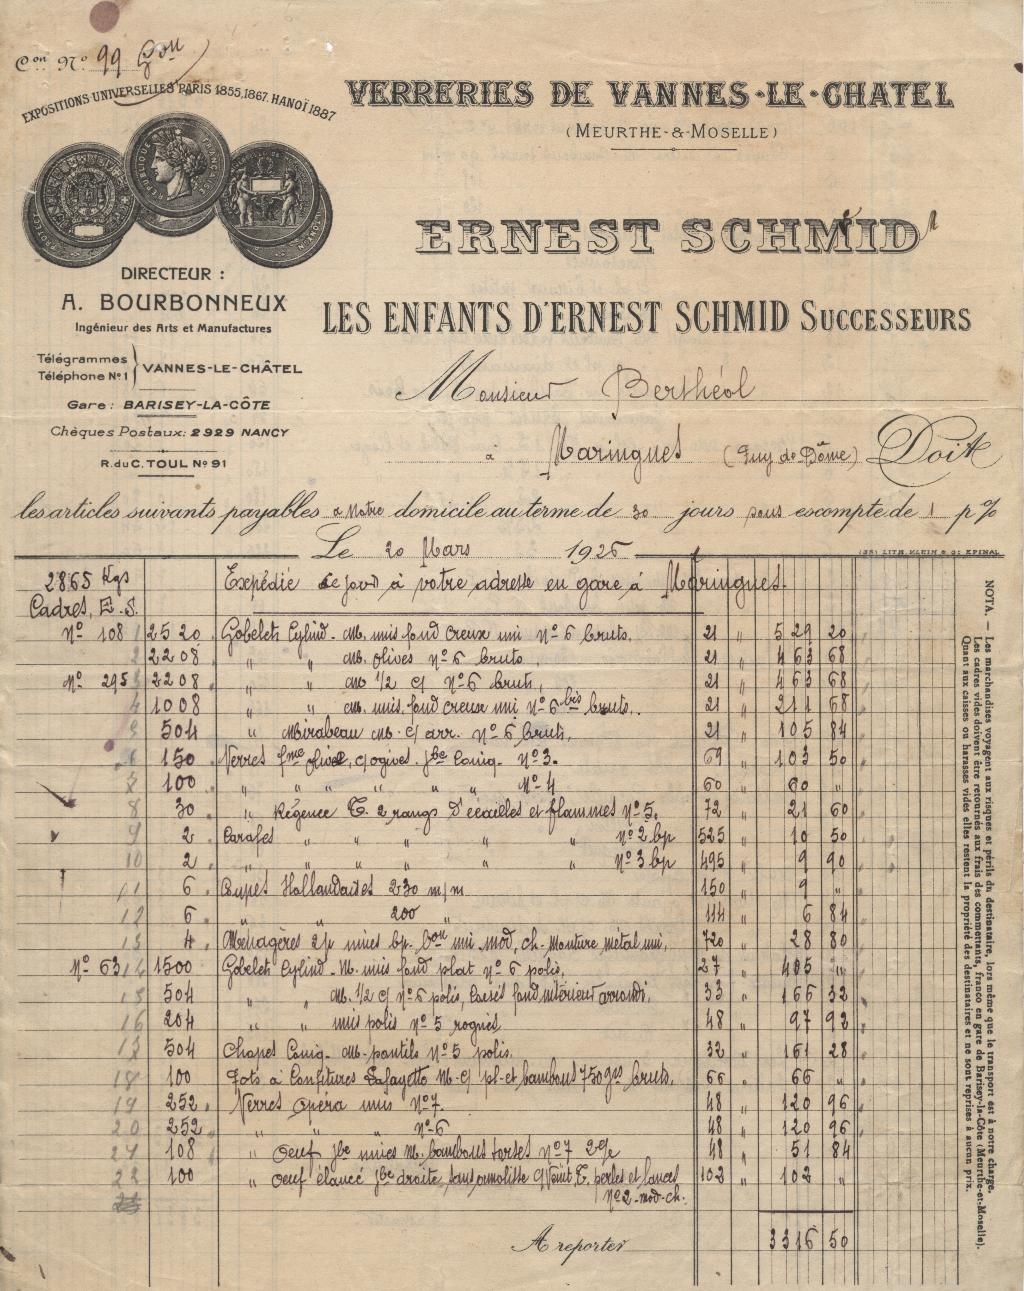 Con No 99 Gou
EXPOSITIONS UNIVERSELLES PARIS 1855, 1867. HANOÏ 1887
RÉPUBLIQUE FRANÇAISE
VERRERIES DE VANNES-LE-CHATEL
(MEURTHE-&-MOSELLE)
ERNEST SCHMID
LES ENFANTS D'ERNEST SCHMID SUCCESSEURS
DIRECTEUR :
A. BOURBONNEUX
Ingénieur des Arts et Manufactures
Télégrammes
Téléphone No 1
VANNES-LE-CHÂTEL
Gare : BARISEY-LA-CÔTE
Chèques Postaux: 2929 NANCY
R. du C. TOUL No 91
Monsieur Berthéol
à Maringues (Puy de Dôme) Doit
les articles suivants payables à Notre domicile au terme de 30 jours sous escompte de 1 p %
Le 20 Mars 1926
(35) LITH. KLEIN & Cie EPINAL
2865 Kgs Expédié ce jour à votre adresse en gare à Maringues.
Cadres, E. S.
No 108 1 2520 Gobelets Cylind. M. unis fond creux uni No 6 bruts. 21 " 529 20
2 2208 " " M. olives No 6 bruts, 21 " 463 68
No 295 3 2208 " " M 1/2 c/ No 6 bruts, 21 " 463 68
4 1008 " " M. unis fond creux uni No 6 bis bruts. 21 " 211 68
5 504 " Mirabeau M. c/ arr. No 6 bruts, 21 " 105 84
6 150 Verres fme olive, c/ ogives jbe Coniq. No 3. 69 " 103 50
7 100 " " " " " " No 4 60 " 60 "
8 30 " Régence T. 2 rangs d'écailles et flammes No 5. 72 " 21 60
9 2 Carafes " " " " " No 2 bp 525 " 10 50
10 2 " " " " " " No 3 bp 495 " 9 90
11 6 Cupes Hollandaises 230 m/m 150 " 9 "
12 6 " " 200 " 114 " 6 84
13 4 Ménagères 2/p unies bp. bon uni mod. ch. Monture métal uni, 720 " 28 80
No 63 14 1500 Gobelets Cylind. M. unis fond plat No 6 polis, 27 " 405 "
15 504 " " M. 1/2 c/ No 6 polis, fond intérieur arrondi, 33 " 166 32
16 204 " " unis polis No 5 rognés 48 " 97 92
17 504 Chopes Coniq. M. pontils No 5 polis. 32 " 161 28
18 100 Pots à Confitures Lafayette M. c/ pl. et bambous 750 grs bruts, 66 " 66 "
19 252 Verres opéra unis No 7. 48 " 120 96
20 252 " " " No 6 48 " 120 96
21 108 " Oeuf jbe unies M. bambous torses No 7 48 " 51 84
22 100 " Oeuf élancé jbe droite, sans T. perles et lances 102 " 102 "
No 2 mod. ch.
A reporter 3316 50
NOTA. — Les marchandises voyagent aux risques et périls du destinataire, lors même que le transport est à notre charge.
Les cadres vides doivent être retournés aux frais des commettants, franco en gare de Barisey-la-Côte (Meurthe-et-Moselle).
Quant aux caisses ou harasses vides elles restent la propriété des destinataires et ne sont reprises à aucun prix.